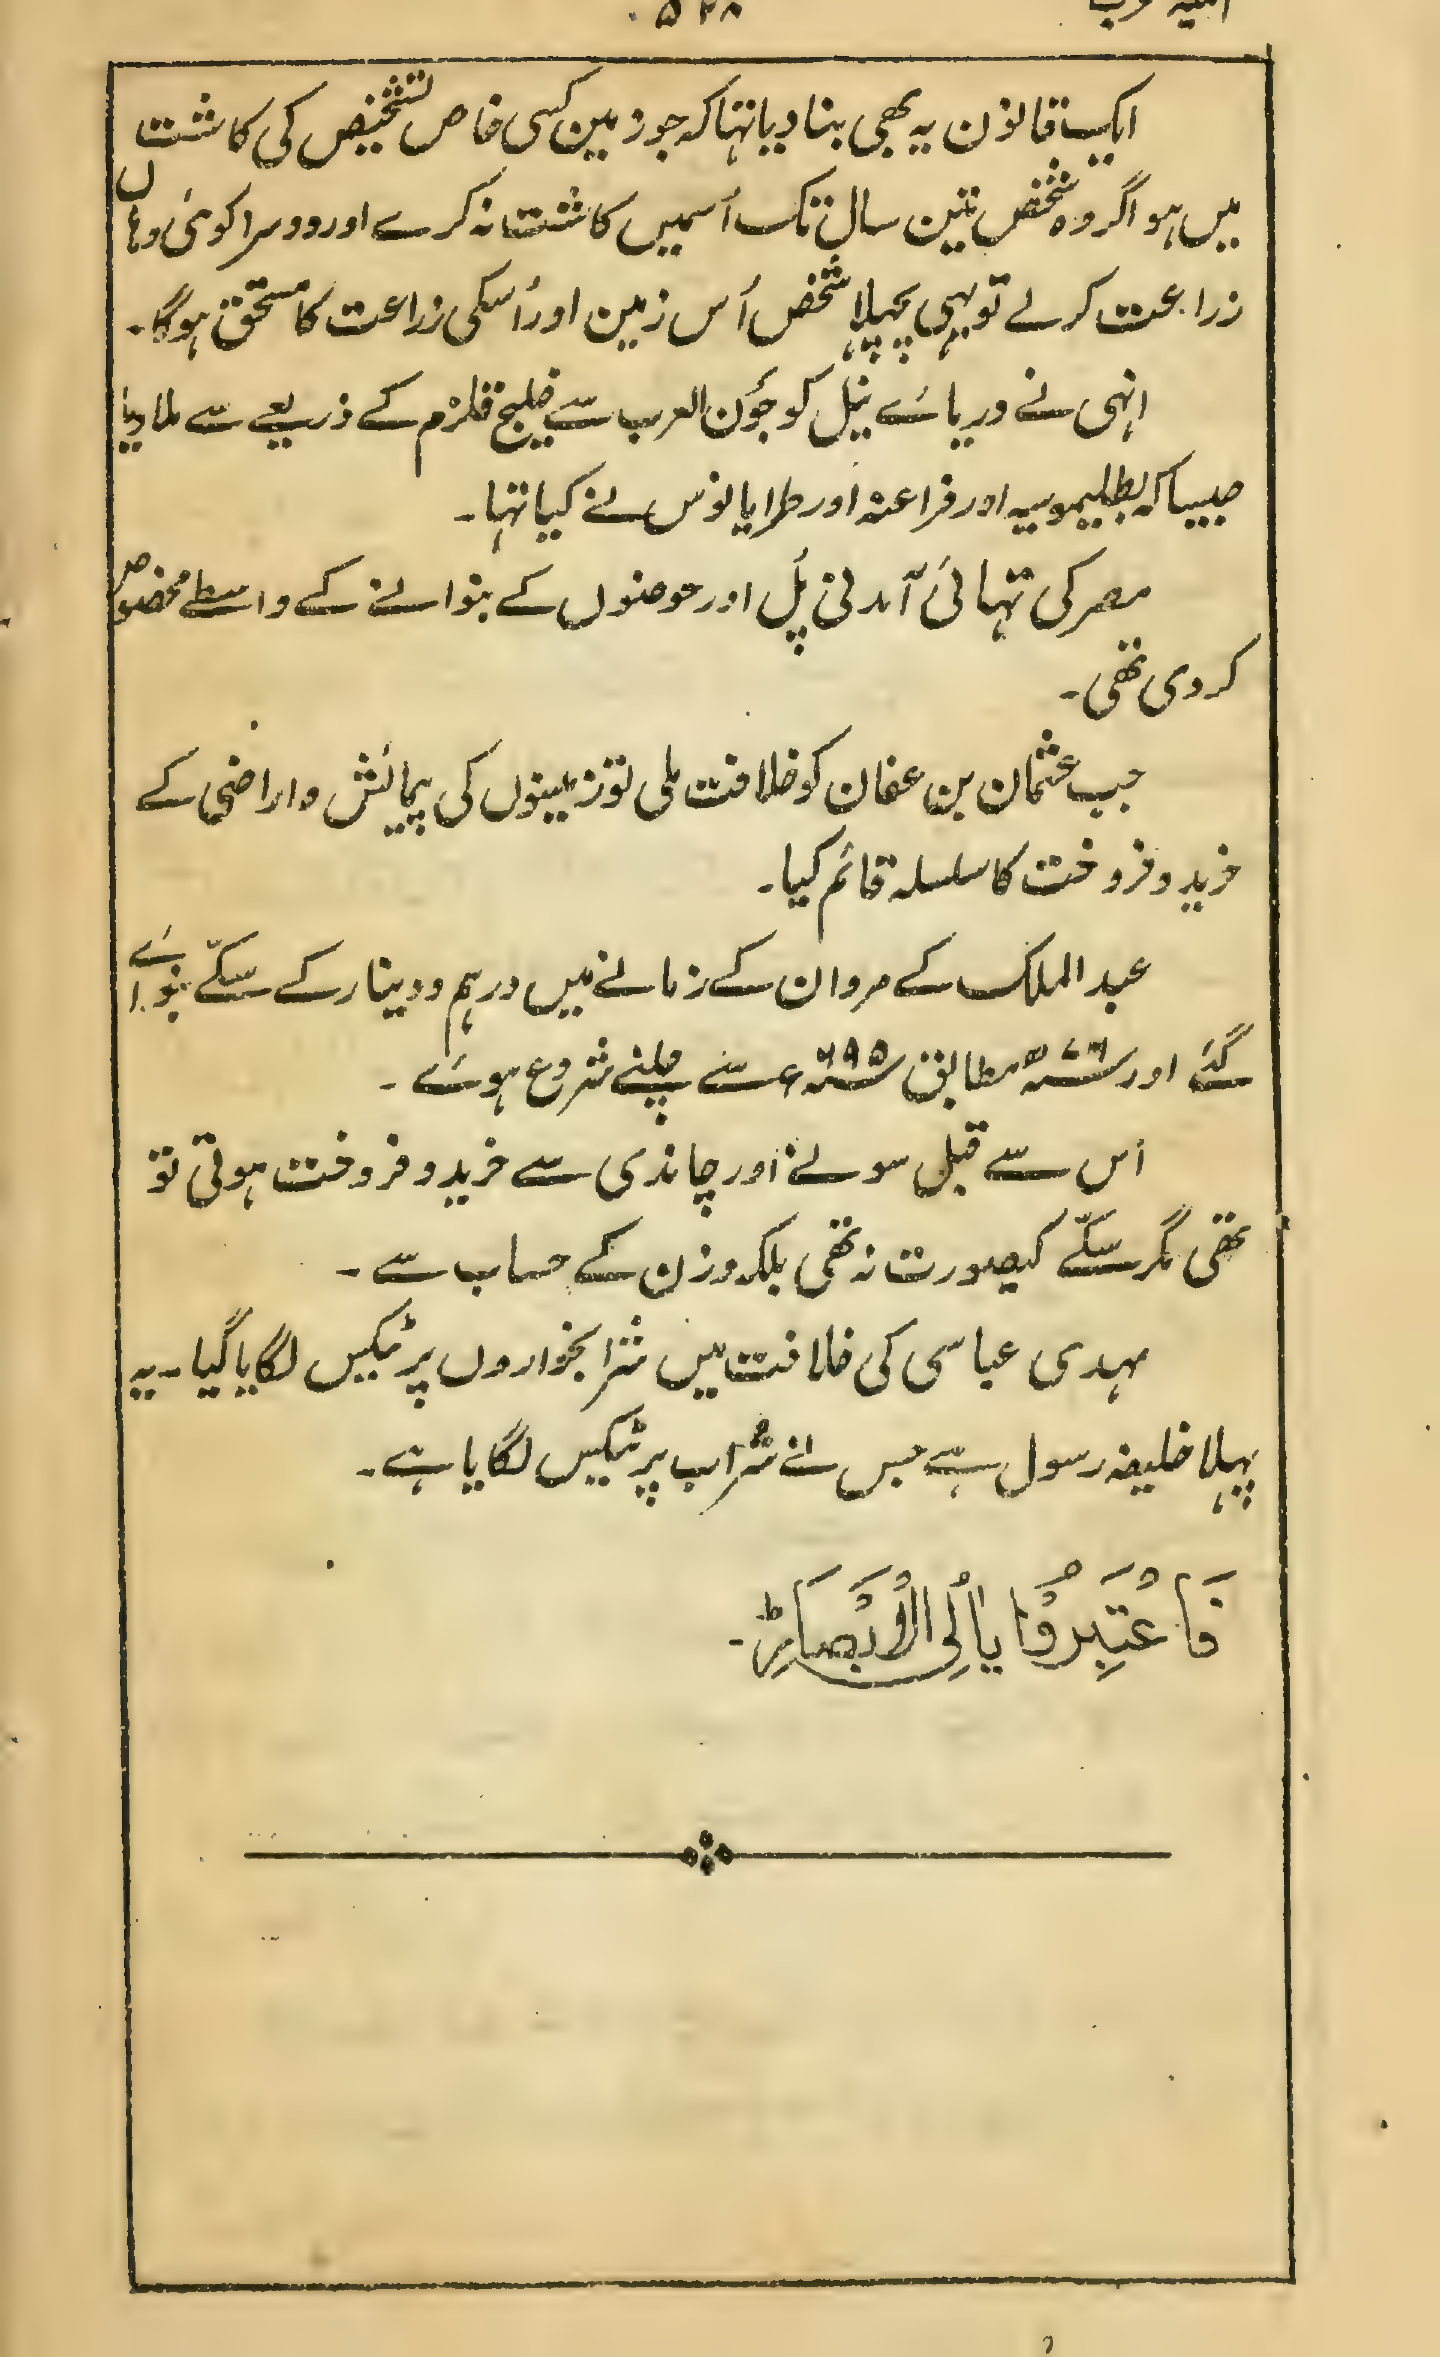 ۵۲۸
ایک قانون یہ بھی بنا دیا تہا کہ جو زمین کسی خاص تشخیص کی کاشت
میں ہو اگر وہ شخص تین سال تک اُسمیں کاشت نہ کرے اور دوسرا کوئی وہاں
زراعت کرلے تو یہی پچھلا شخص اُس زمین اور اُسکی زراعت کا مستحق ہوگا۔
انہی نے دریائے نیل کو جَون العرب سے خلیج قلزم کے ذریعے سے ملا دیا
جیسا کہ بطلیموسیہ اور فراعنہ اور طرایانوس نے کیا تہا۔
مصر کی تہائی آمدنی پُل اور حوضوں کے بنوانے کے واسطے مخصوص
کردی تھی۔
جب عثمان بن عفان کو خلافت ملی تو زمینوں کی پیمائش و اراضی کے
خرید و فروخت کا سلسلہ قائم کیا۔
عبد الملک کے مروان کے زمانے میں درہم و دینار کے سکّے بنوائے
گئے اور ۷۶ھ مطابق ۶۹۵ء سے چلنے شروع ہوئے۔
اس سے قبل سونے اور چاندی سے خرید و فروخت ہوتی تو
تھی مگر سکّے کیصورت نہ تھی بلکہ وزن کے حساب سے۔
مہدی عباسی کی خلافت میں شرابخواروں پر ٹیکس لگایا گیا۔ یہ
پہلا خلیفہ رسول ہے جس نے شراب پر ٹیکس لگایا ہے۔
فَاعْتَبِرُوْا یٰاُلِی الْاَبْصَارِط۔